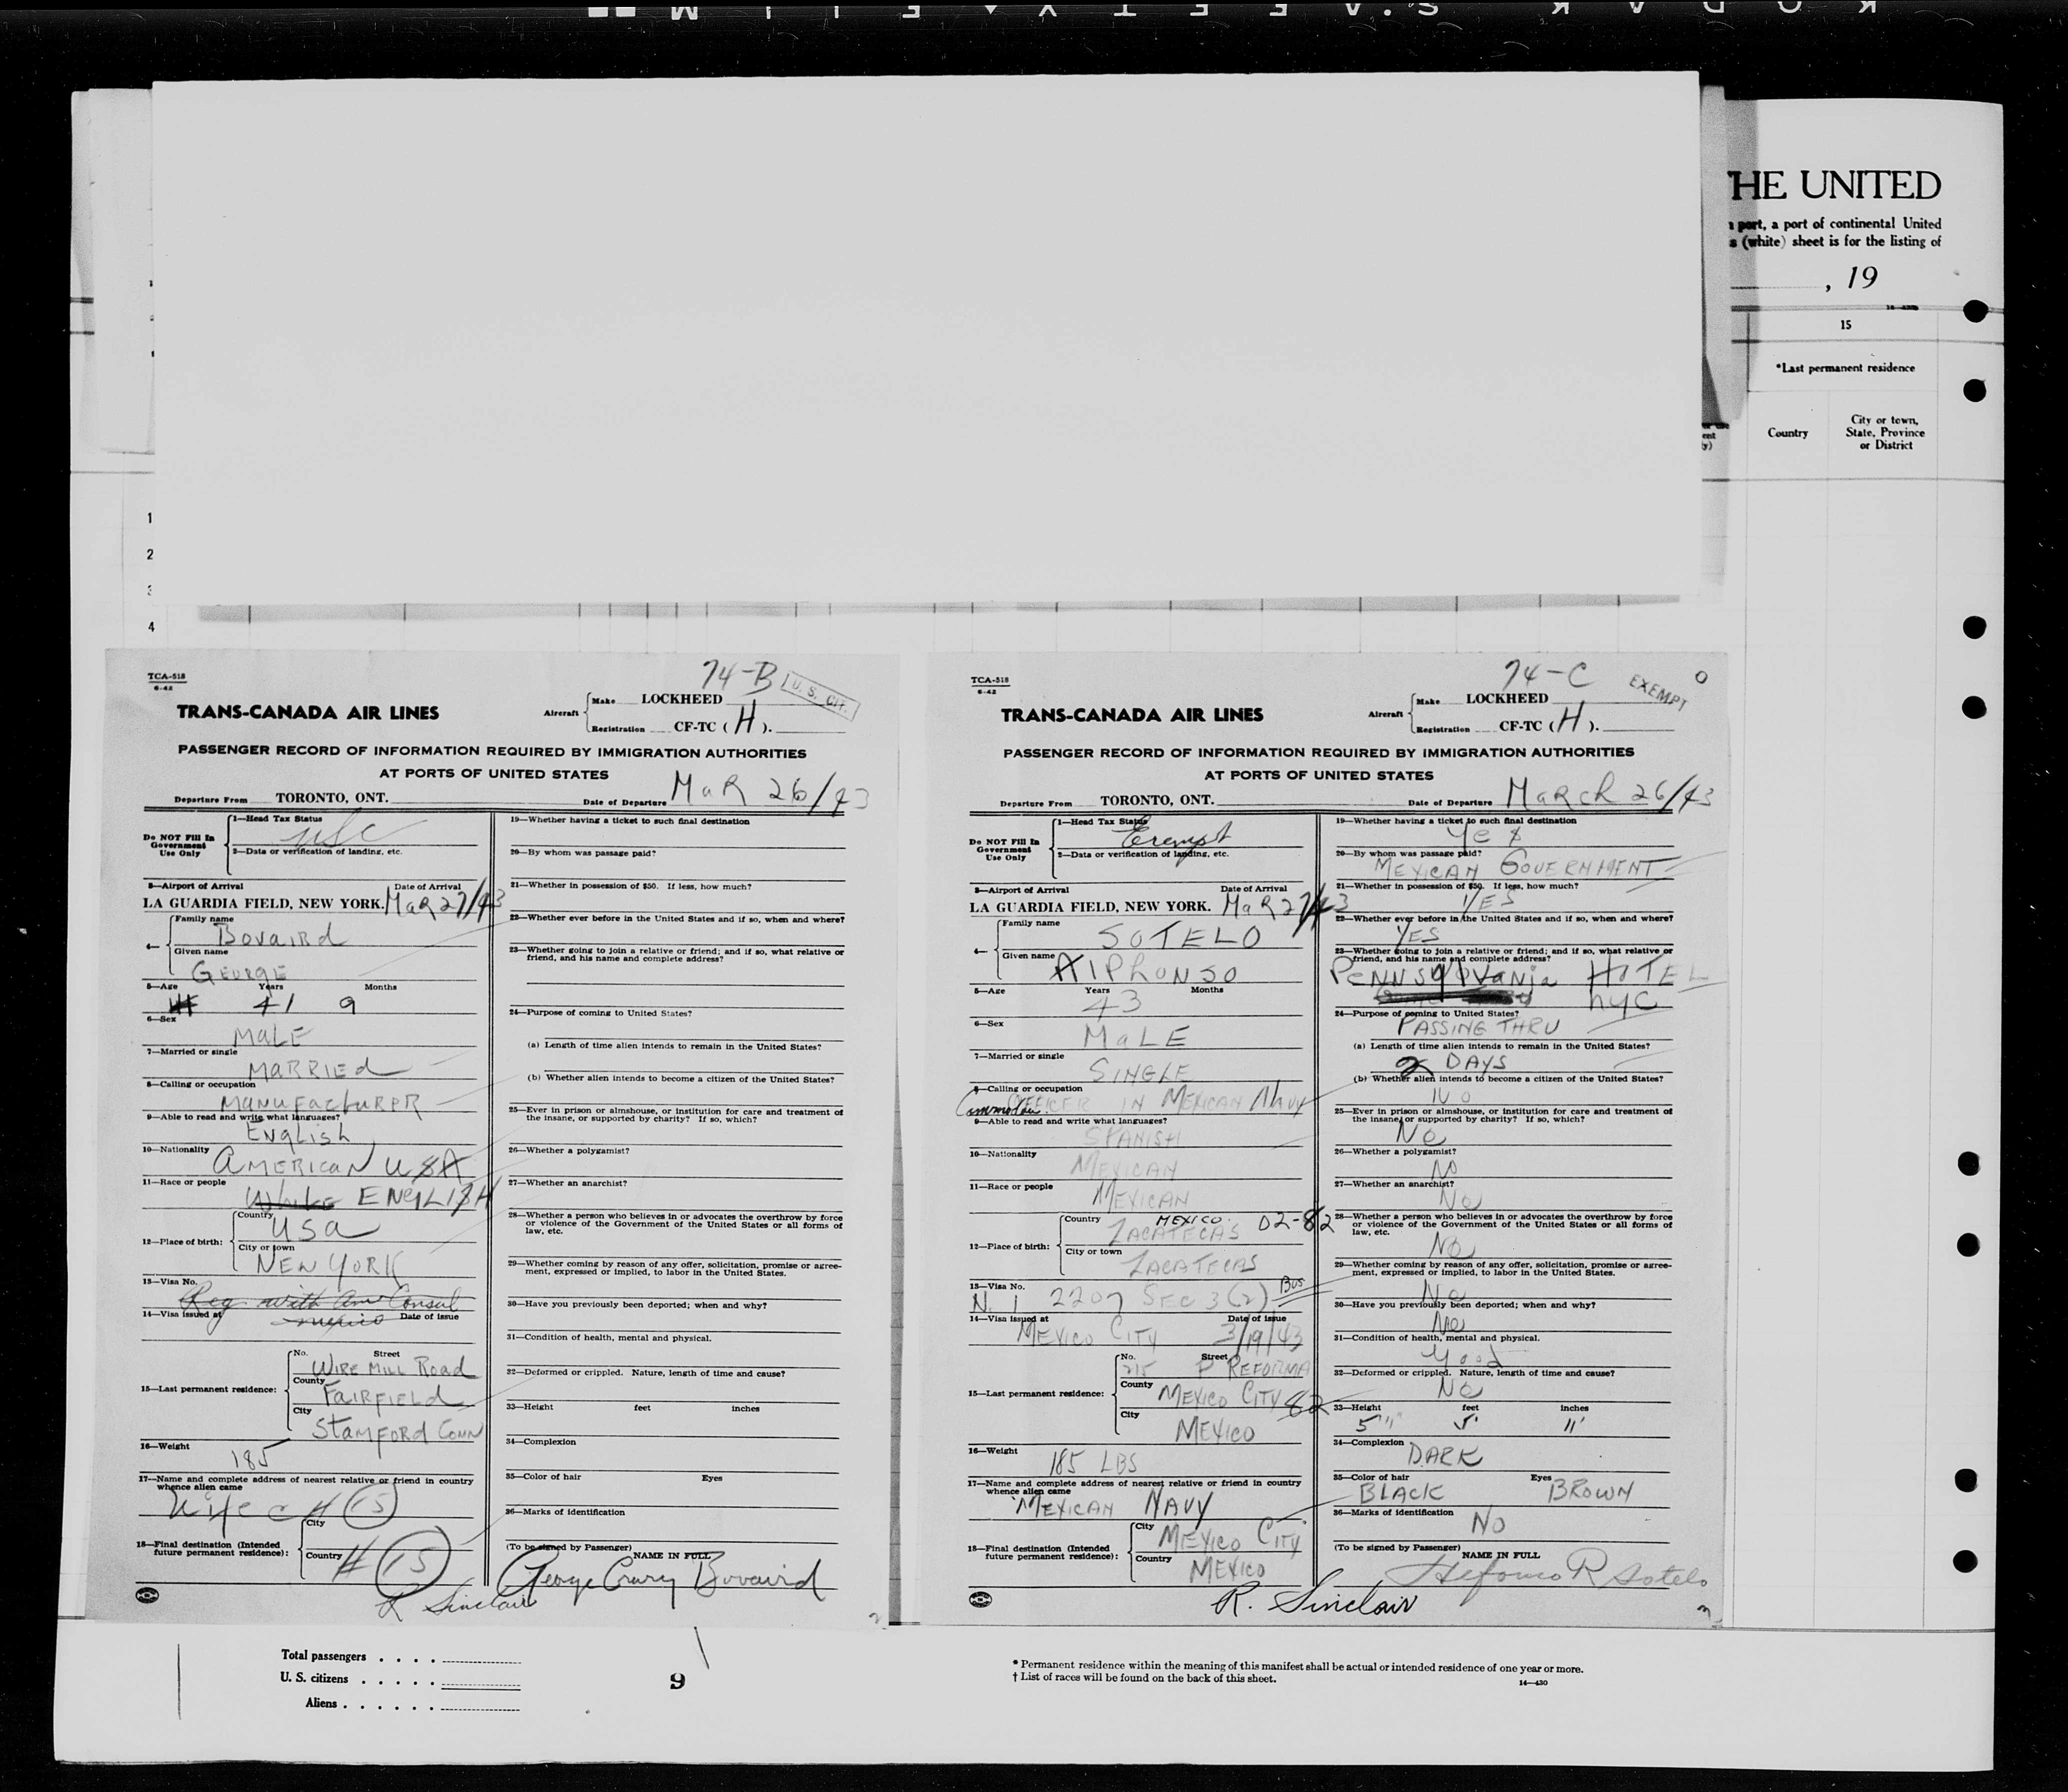 KODAK SAFETY FILM
THE UNITED
port, a port of continental United
(white) sheet is for the listing of
, 19
15
*Last permanent residence
Country
City or town,
State, Province
or District
1
2
3
4
TCA-518
6-42
74-B
U. S. CIT.
TRANS-CANADA AIR LINES
Aircraft
Make LOCKHEED
Registration CF-TC (H).
PASSENGER RECORD OF INFORMATION REQUIRED BY IMMIGRATION AUTHORITIES
AT PORTS OF UNITED STATES
Departure From TORONTO, ONT.
Date of Departure MaR 26/43
Do NOT Fill In
Government
Use Only
1—Head Tax Status
usc
2—Data or verification of landing, etc.
3—Airport of Arrival Date of Arrival
LA GUARDIA FIELD, NEW YORK. MaR 27/43
4—
Family name
BovaiRd
Given name
GEORgE
5—Age Years Months
41 9
6—Sex
MaLE
7—Married or single
MaRRIEd
8—Calling or occupation
ManuFactuRER
9—Able to read and write what languages?
ENglish
10—Nationality
AMERICaN USA
11—Race or people
White ENgLISH
12—Place of birth:
Country
USa
City or town
NEW YORK
13—Visa No.
Reg with Am Consul
14—Visa issued at Date of issue
mexico
15—Last permanent residence:
No. Street
WIRE MILL Road
County
FaiRFIELd
City
StamFORd CONN
16—Weight
185
17—Name and complete address of nearest relative or friend in country
whence alien came
Wife c # 15
18—Final destination (Intended
future permanent residence):
City
Country
# 15
19—Whether having a ticket to such final destination
20—By whom was passage paid?
21—Whether in possession of $50. If less, how much?
22—Whether ever before in the United States and if so, when and where?
23—Whether going to join a relative or friend; and if so, what relative or
friend, and his name and complete address?
24—Purpose of coming to United States?
(a) Length of time alien intends to remain in the United States?
(b) Whether alien intends to become a citizen of the United States?
25—Ever in prison or almshouse, or institution for care and treatment of
the insane, or supported by charity? If so, which?
26—Whether a polygamist?
27—Whether an anarchist?
28—Whether a person who believes in or advocates the overthrow by force
or violence of the Government of the United States or all forms of
law, etc.
29—Whether coming by reason of any offer, solicitation, promise or agree-
ment, expressed or implied, to labor in the United States.
30—Have you previously been deported; when and why?
31—Condition of health, mental and physical.
32—Deformed or crippled. Nature, length of time and cause?
33—Height feet inches
34—Complexion
35—Color of hair Eyes
36—Marks of identification
(To be signed by Passenger)
NAME IN FULL
George Crary Bovaird
R Sinclair
2
TCA-518
6-42
74-C
EXEMPT
0
TRANS-CANADA AIR LINES
Aircraft
Make LOCKHEED
Registration CF-TC (H).
PASSENGER RECORD OF INFORMATION REQUIRED BY IMMIGRATION AUTHORITIES
AT PORTS OF UNITED STATES
Departure From TORONTO, ONT.
Date of Departure MaRch 26/43
Do NOT Fill In
Government
Use Only
1—Head Tax Status
Exempt
2—Data or verification of landing, etc.
3—Airport of Arrival Date of Arrival
LA GUARDIA FIELD, NEW YORK. MaR 27/43
4—
Family name
SOTELO
Given name
AlPhONSO
5—Age Years Months
43
6—Sex
MaLE
7—Married or single
SINGLE
8—Calling or occupation
Commodore OFFICER IN MEXICAN Navy
9—Able to read and write what languages?
SPANISH
10—Nationality
MEXICAN
11—Race or people
MEXICAN
12—Place of birth:
Country
MEXICO 02-82
ZACATECAS
City or town
ZACATECAS
13—Visa No.
N. I 2207 SEC 3(2) Bus
14—Visa issued at Date of issue
MEXICO CITY 3/19/43
15—Last permanent residence:
No. Street
215 P REFORMA
County
MEXICO CITY 82
City
MEXICO
16—Weight
185 LBS
17—Name and complete address of nearest relative or friend in country
whence alien came
MEXICAN NAVY
18—Final destination (Intended
future permanent residence):
City
MEXICO CITY
Country
MEXICO
19—Whether having a ticket to such final destination
Yes
20—By whom was passage paid?
MEXICAN GOVERNMENT
21—Whether in possession of $50. If less, how much?
YES
22—Whether ever before in the United States and if so, when and where?
YES
23—Whether going to join a relative or friend; and if so, what relative or
friend, and his name and complete address?
PENNSylvania HOTEL
NYC
24—Purpose of coming to United States?
PASSING THRU
(a) Length of time alien intends to remain in the United States?
2 DAYS
(b) Whether alien intends to become a citizen of the United States?
NO
25—Ever in prison or almshouse, or institution for care and treatment of
the insane, or supported by charity? If so, which?
No
26—Whether a polygamist?
No
27—Whether an anarchist?
No
28—Whether a person who believes in or advocates the overthrow by force
or violence of the Government of the United States or all forms of
law, etc.
No
29—Whether coming by reason of any offer, solicitation, promise or agree-
ment, expressed or implied, to labor in the United States.
No
30—Have you previously been deported; when and why?
No
31—Condition of health, mental and physical.
Good
32—Deformed or crippled. Nature, length of time and cause?
No
33—Height feet inches
5' 11" 5' 11"
34—Complexion
DARK
35—Color of hair Eyes
BLACK BROWN
36—Marks of identification
NO
(To be signed by Passenger)
NAME IN FULL
Ildefonso R Sotelo
R. Sinclair
3
Total passengers . . . .
U. S. citizens . . . . .
Aliens . . . . . .
9
* Permanent residence within the meaning of this manifest shall be actual or intended residence of one year or more.
† List of races will be found on the back of this sheet.
14—430